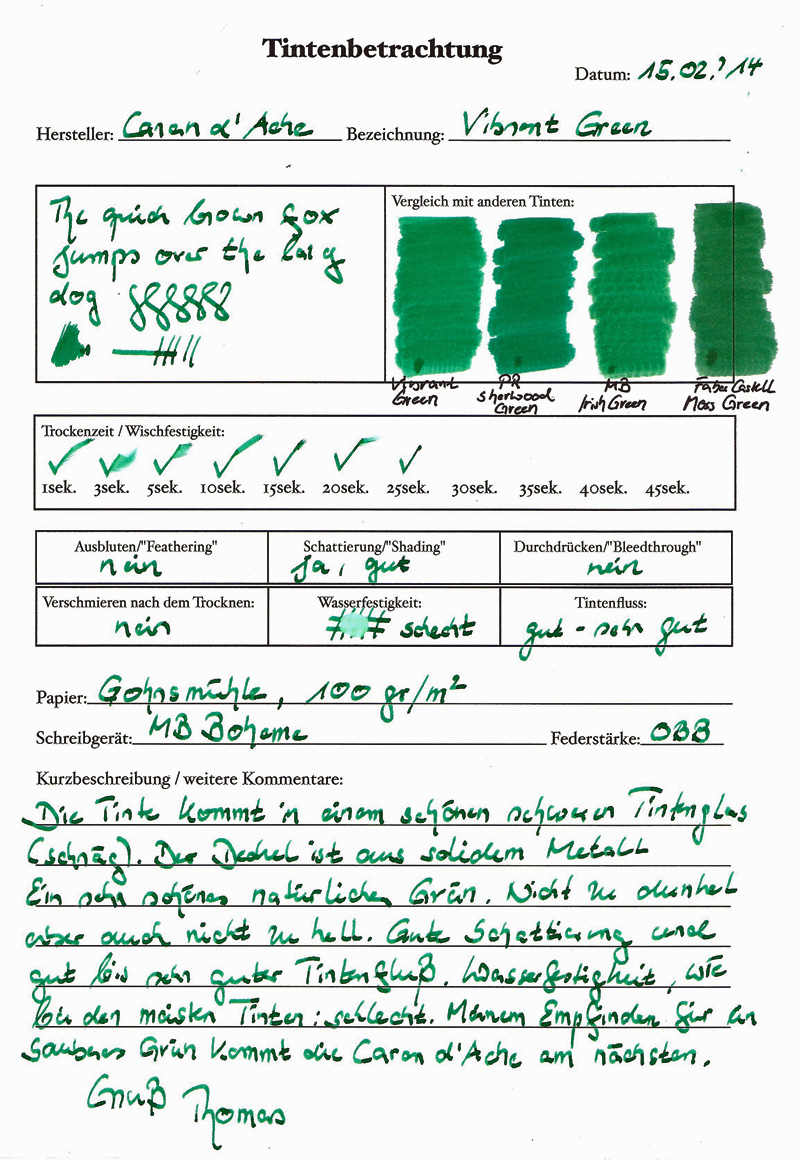 Tintenbetrachtung
Datum: 15.02.'14
Hersteller: Caran d'Ache Bezeichnung: Vibrant Green
The quick brown fox
jumps over the lazy
dog
Vergleich mit anderen Tinten:
Vibrant Green
PR Sherwood Green
MB Irish Green
Faber Castell Moss Green
Trockenzeit / Wischfestigkeit:
1sek. 3sek. 5sek. 10sek. 15sek. 20sek. 25sek. 30sek. 35sek. 40sek. 45sek.
Ausbluten/"Feathering" Schattierung/"Shading" Durchdrücken/"Bleedthrough"
nein ja, gut nein
Verschmieren nach dem Trocknen: Wasserfestigkeit: Tintenfluss:
nein schecht gut - sehr gut
Papier: Gohrsmühle, 100 gr/m²
Schreibgerät: MB Boheme Federstärke: OBB
Kurzbeschreibung / weitere Kommentare:
Die Tinte kommt in einem schönen schweren Tintenglas
(schräg). Der Deckel ist aus solidem Metall
Ein sehr schönes natürliches Grün. Nicht zu dunkel
aber auch nicht zu hell. Gute Schattierung und
gut bis sehr guter Tintenfluß. Wasserfestigkeit, wie
bei den meisten Tinten: schlecht. Meinem Empfinden für ein
sauberes Grün kommt die Caran d'Ache am nächsten.
Gruß Thomas